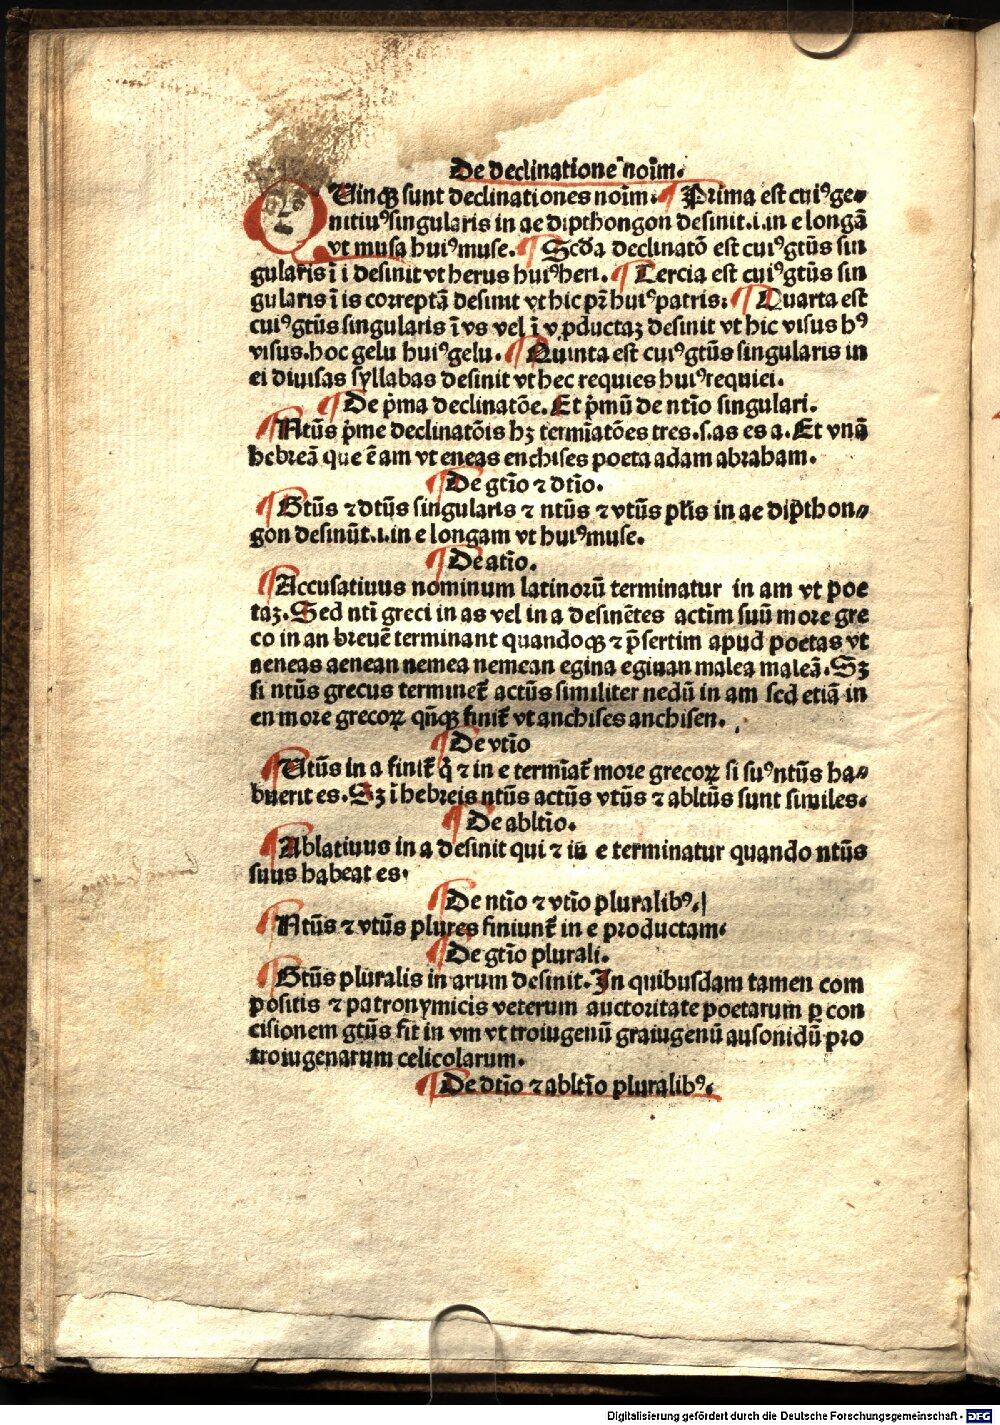 De declinatione noīm.
QUinqꝫ sunt declinationes noīm. ¶ Prima est cuiꝰ ge⸗
nitiuꝰ singularis in ae dipthongon desinit.i.in e longā
vt musa huiꝰ muse. ¶ Scd̄a declinatō est cuiꝰ gtūs sin
gularis ī i desinit vt herus huiꝰ heri. ¶ Tercia est cuiꝰ gtūs sin
gularis ī is correptā desinit vt hic pr̄ huiꝰ patris: ¶ Quarta est
cuiꝰ gtūs singularis ī vs vel ī v ꝓductaꝫ desinit vt hic visus hꝰ
visus.hoc gelu huiꝰ gelu. ¶ Quinta est cuiꝰ gtūs singularis in
ei diuisas syllabas desinit vt hec requies huiꝰ requiei.
¶ De p̄ma declinatōe. Et p̄mū de ntīo singulari.
¶ Ntūs p̄me declinatōis hꝫ termīatōes tres.s.as es a. Et vnā
hebreā que ē am vt eneas enchises poeta adam abraham.
¶ De gtīo ⁊ dtīo.
¶ Gtūs ⁊ dtūs singularis ⁊ ntūs ⁊ vtūs pl̄is in ae dipthon⸗
gon desinūt.i.in e longam vt huiꝰ muse.
¶ De atīo.
¶ Accusatiuus nominum latinorū terminatur in am vt poe
taꝫ. Sed ntī greci in as vel in a desinētes actīm suū more gre
co in an breuē terminant quandoqꝫ ⁊ p̄sertim apud poetas vt
aeneas aenean nemea nemean egina eginan malea maleā. Sꝫ
si ntūs grecus terminet̄ actūs similiter nedū in am sed etiā in
en more grecoꝝ qn̄qꝫ finit̄ vt anchises anchisen.
¶ De vtīo
¶ Vtūs in a finit̄ q̄ ⁊ in e termīat̄ more grecoꝝ si suꝰ ntūs ha⸗
buerit es. Sꝫ ī hebreis ntūs actūs vtūs ⁊ abltūs sunt similes.
¶ De abltīo.
¶ Ablatiuus in a desinit qui ⁊ in e terminatur quando ntūs
suus habeat es.
¶ De ntīo ⁊ vtīo pluralibꝰ.
¶ Ntūs ⁊ vtūs plures finiunt̄ in e productam.
¶ De gtīo plurali.
¶ Gtūs pluralis in arum desinit. In quibusdam tamen com
positis ⁊ patronymicis veterum auctoritate poetarum ꝑ con
cisionem gtūs fit in vm vt troiugenū graiugenū ausonidū pro
troiugenarum celicolarum.
¶ De dtīo ⁊ abltīo pluralibꝰ.
Digitalisierung gefördert durch die Deutsche Forschungsgemeinschaft - DFG